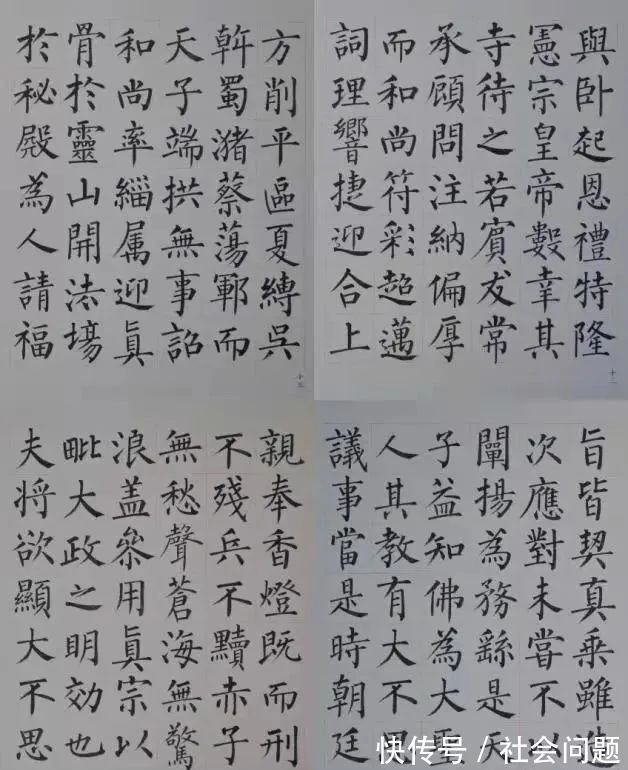 與卧起恩禮特隆
憲宗皇帝數幸其
寺待之若賓友常
承顧問注納偏厚
而和尚符彩超邁
詞理響捷迎合上
旨皆契真乘雖造
次應對未嘗不以
闡揚為務繇是天
子益知佛為大聖
人其教有大不思
議事當是時朝廷
方削平區夏縛吳
斡蜀瀦蔡蕩鄆而
天子端拱無事詔
和尚率緇属迎眞
骨於靈山開法場
於秘殿為人請福
親奉香燈既而刑
不殘兵不黷赤子
無愁聲蒼海無驚
浪盖參用眞宗以
毗大政之明効也
夫將欲顯大不思
快传号/社会问题